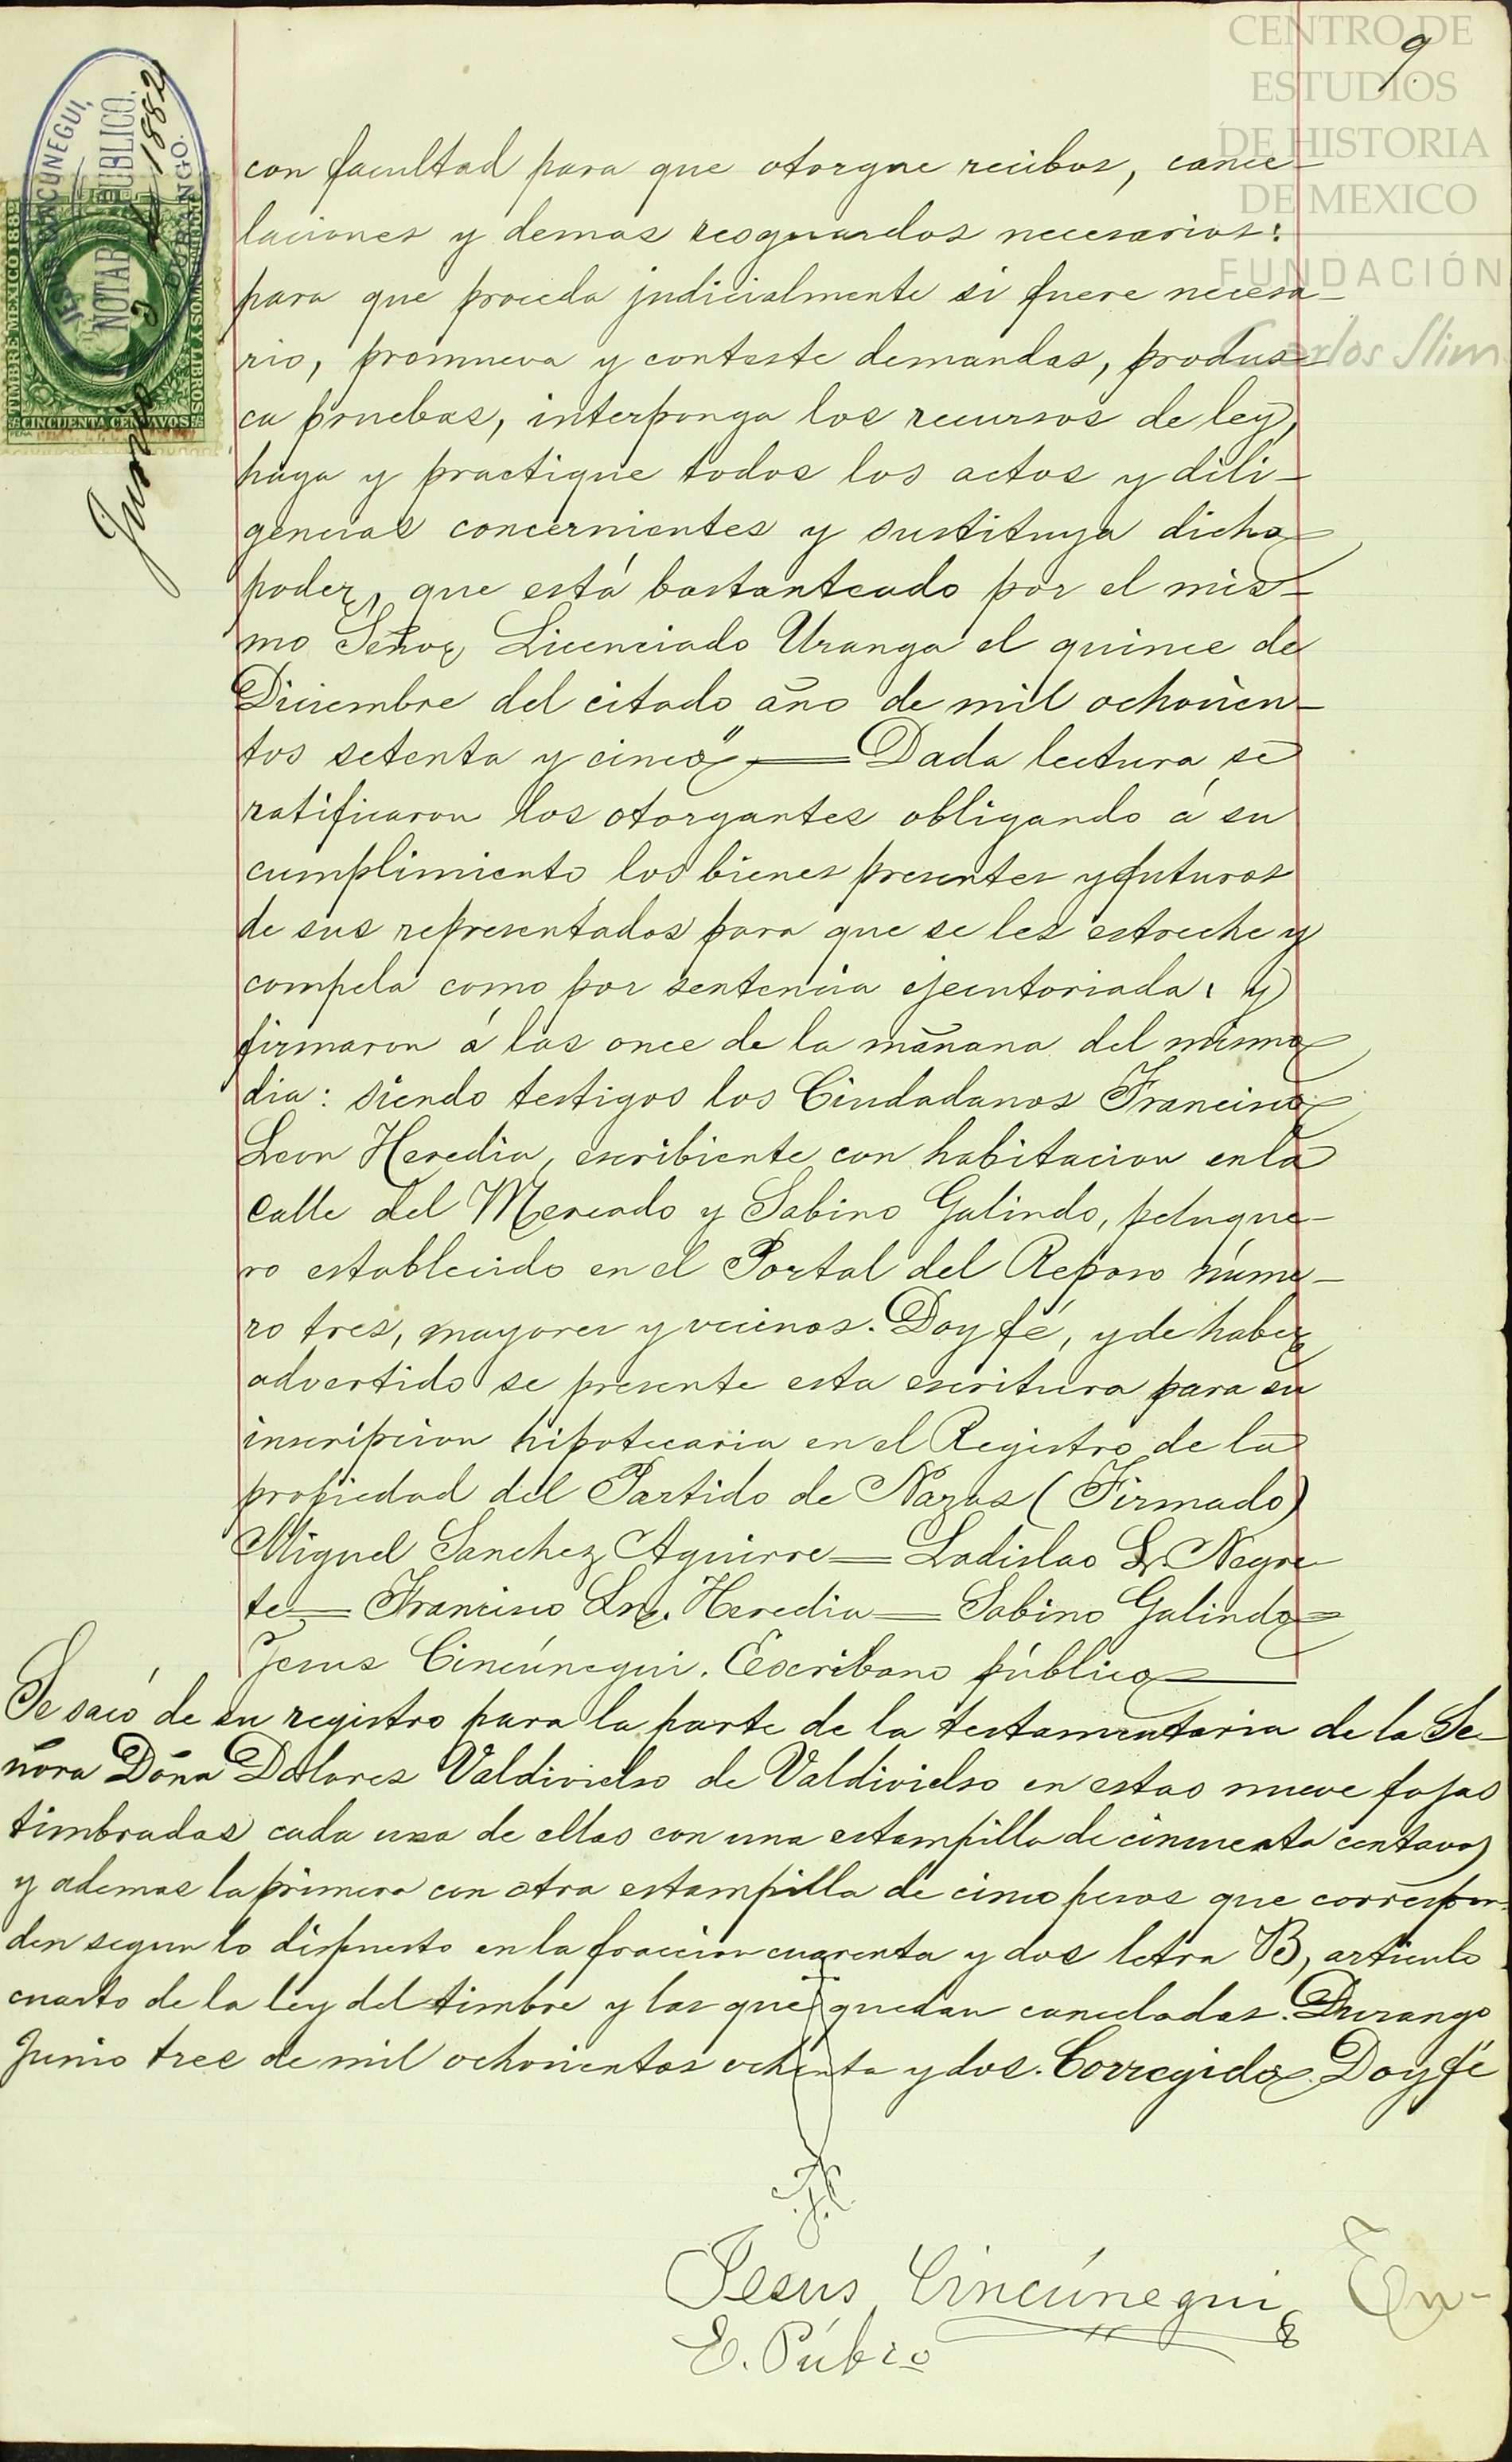 CENTRO DE
ESTUDIOS
DE HISTORIA
DE MEXICO
FUNDACIÓN
Carlos Slim
9
JESUS CINCÚNEGUI,
NOTARIO PUBLICO.
DURANGO.
Junio 3 de 1882
TIMBRE MEXICO 1882
DOCUMENTOS Y LIBROS
CINCUENTA CENTAVOS
con facultad para que otorgue recibos, cance-
laciones y demas resguardos necesarios:
para que proceda judicialmente si fuere necesa-
rio, promueva y conteste demandas, produs-
ca pruebas, interponga los recursos de ley,
haga y practique todos los actos y dili-
gencias concernientes y sustituya dicho
poder, que está bastanteado por el mis-
mo Señor Licenciado Uranga el quince de
Diciembre del citado año de mil ochocien-
tos setenta y cinco" = Dada lectura se
ratificaron los otorgantes obligando á su
cumplimiento los bienes presentes y futuros
de sus representados para que se les estreche y
compela como por sentencia ejecutoriada: y
firmaron á las once de la mañana del mismo
dia: siendo testigos los Ciudadanos Francisco
Leon Heredia, escribiente con habitacion en la
calle del Mercado y Sabino Galindo, peluque-
ro establecido en el Portal del Reposo núme-
ro tres, mayores y vecinos. Doy fé, y de haber
advertido se presente esta escritura para su
inscripcion hipotecaria en el Registro de la
propiedad del Partido de Nazas (Firmado)
Miguel Sanchez Aguirre = Ladislao L. Negre-
te = Francisco Ln. Heredia = Sabino Galindo =
Jesus Cincúnegui. Escribano público
Se sacó de su registro para la parte de la testamentaria de la Se-
ñora Doña Dolores Valdivielso de Valdivielso en estas nueve fojas
timbradas cada una de ellas con una estampilla de cincuenta centavos
y ademas la primera con otra estampilla de cinco pesos que correspon-
den segun lo dispuesto en la fraccion cuarenta y dos letra B, articulo
cuarto de la ley del timbre y las que quedan canceladas. Durango
Junio tres de mil ochocientos ochenta y dos. Corregido. Doy fé
Jesus Cincúnegui
E. Púbco
En-